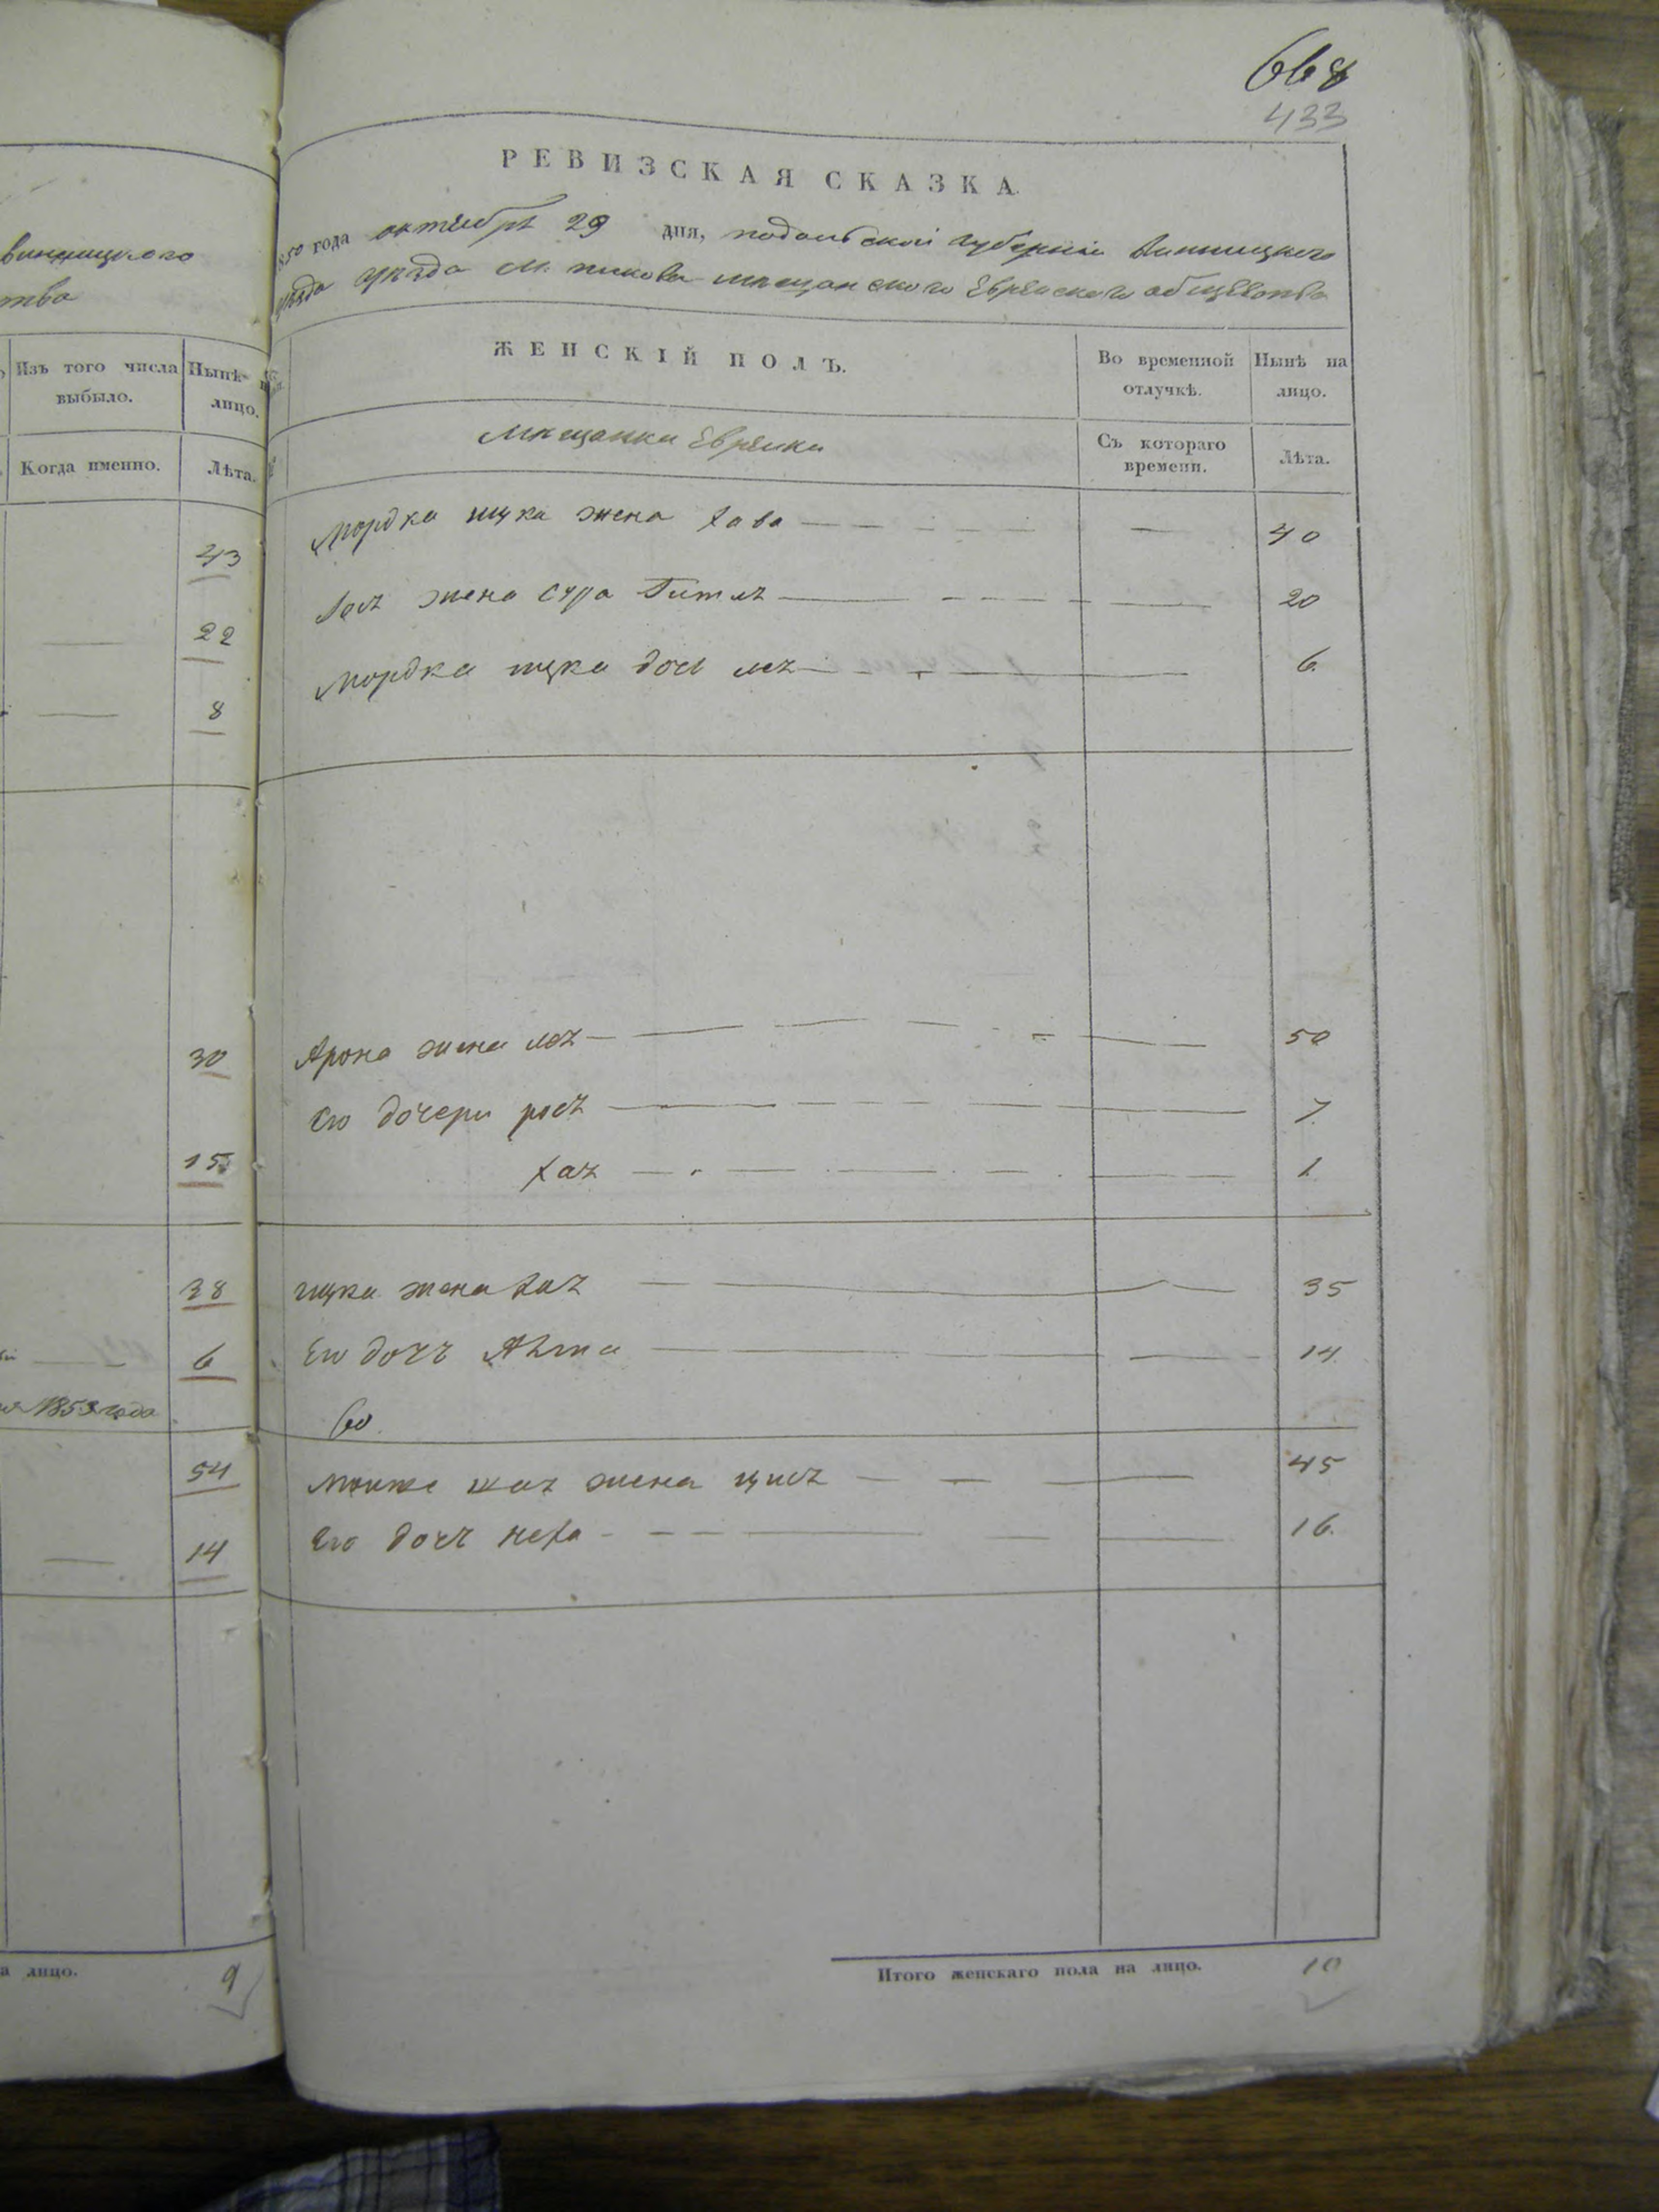 668
433
РЕВИЗСКАЯ СКАЗКА.
1850 года октября 29 дня, подольской губернии Винницкого
уезда уезда М. пикова мещанского Еврейского общества
винницкого
ства
Изъ того числа выбыло.
Нынѣ на лицо.
Когда именно.
Лѣта.
ЖЕНСКІЙ ПОЛЪ.
Во временной отлучкѣ.
Нынѣ на лицо.
мещанки Еврейки
Съ котораго времени.
Лѣта.
43
Мордка ицка жена хава — — 40
22
жена сура Гитлъ — — 20
8
Мордка ицка доч леz — — 6.
30
Арона жена леz — — 50
Его дочери — — 7.
15
хаz — — 1.
38
ицка жена хаz — — 35
6
Его дочz — — 14.
1853 года
54
жена — — 45
14
Его дочz неха — — 16.
на лицо. 9
Итого женскаго пола на лицо. 10